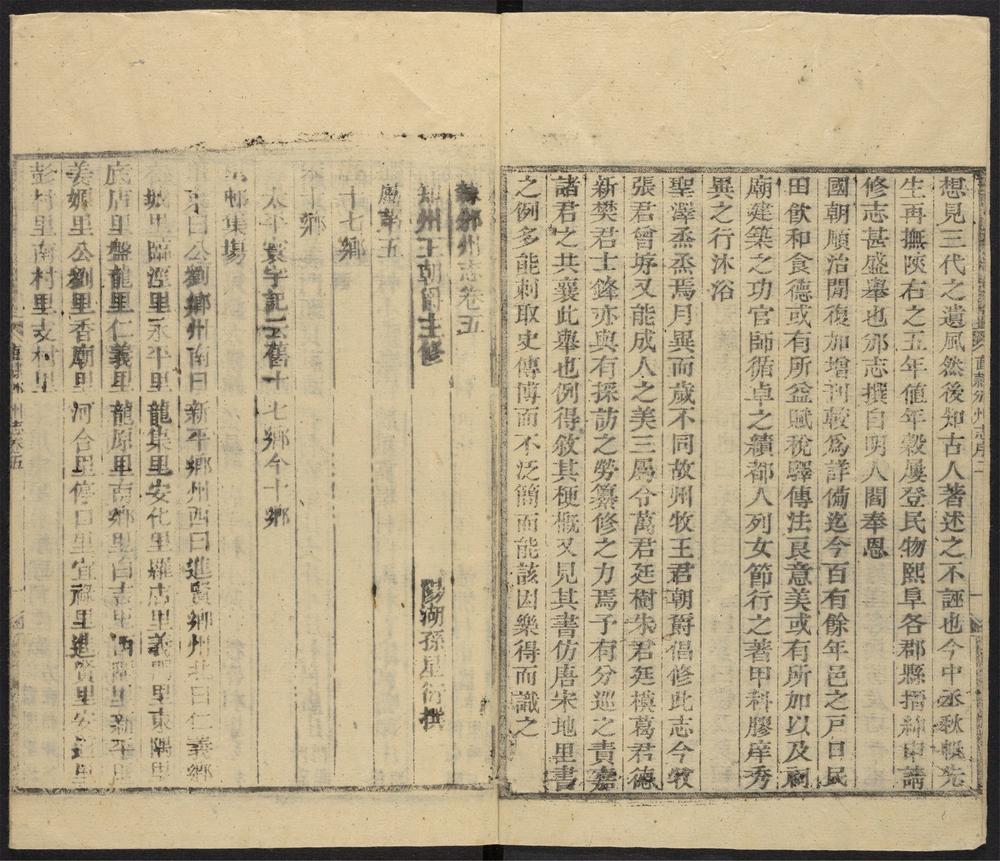 想見三代之遺風然後知古人著述之不誣也今中丞秋帆先
生再撫陝右之五年値年穀屢登民物熙阜各郡縣搢紳申請
修志甚盛舉也邠志撰自明人閻奉恩
國朝順治間復加增刊較爲詳備迄今百有餘年邑之戸口民
田飲和食德或有所益賦稅驛傳法良意美或有所加以及祠
廟建築之功官師循卓之績都人列女節行之著甲科膠庠秀
異之行沐浴
聖澤烝烝焉月異而歲不同故州牧王君朝爵倡修此志今牧
張君曾垿又能成人之美三屬令萬君廷樹朱君廷模葛君德
新樊君士鋒亦與有採訪之勞纂修之力焉予有分巡之責嘉
諸君之共襄此舉也例得敘其梗概又見其書仿唐宋地里書
之例多能刺取史傳博而不泛簡而能該因樂得而識之
直隸邠州志序二
隸邠州志卷五
知州王朝爵主修 陽湖孫星衍撰
屬第五
十七鄉
太平寰宇記云舊十七鄉今十鄉
十鄉
邨集場
曰公劉鄉州南曰新平鄉州西曰進賢鄉州北曰仁義鄉
里臨涇里永平里龍集里安化里 里義門里東隅里
底店里盤龍里仁義里龍原里南鄉里白吉里西隅里新平里
姜嫄里公劉里香廟里河台里停口里宜祿里進賢里安 里
彭村里南村里 村里
州志卷五